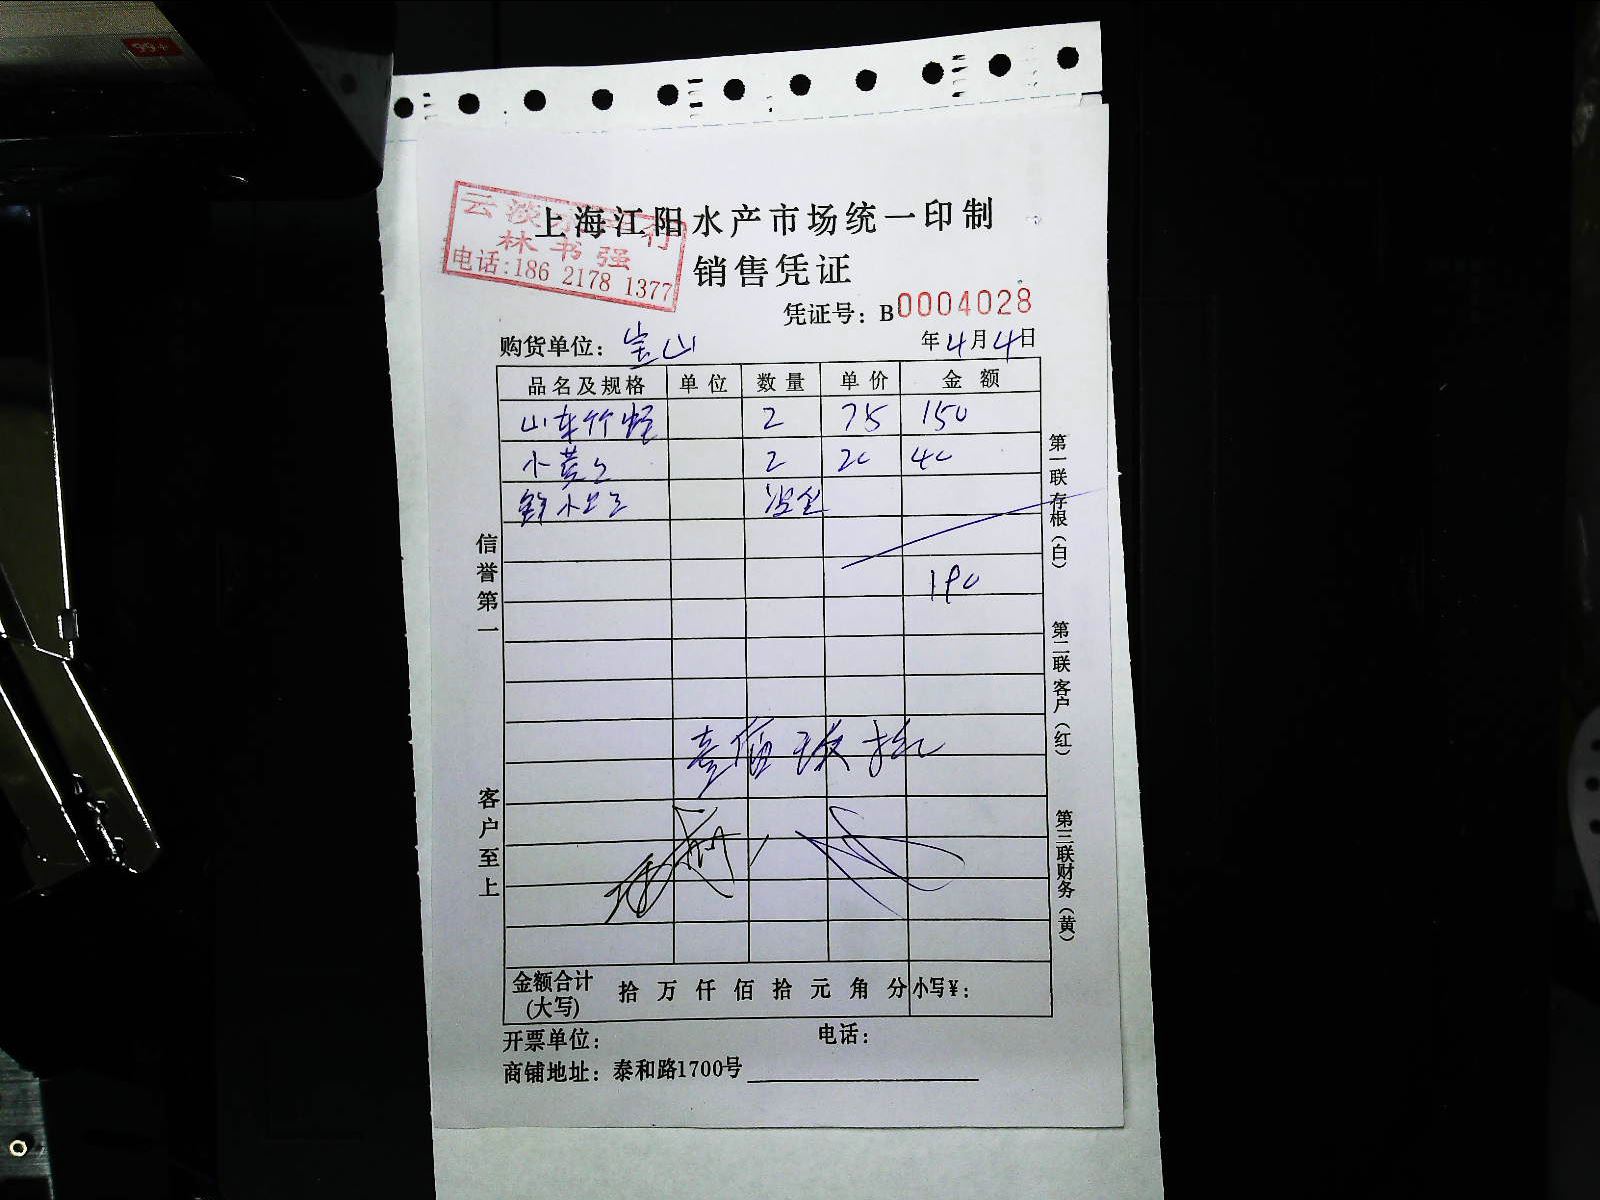 99+
云淡
林书强
电话:186 2178 1377
上海江阳水产市场统一印制
销售凭证
凭证号：B0004028
购货单位：宝山 年4月4日
品名及规格 单位 数量 单价 金额
山东竹蛏 2 75 150
小黄 2 20 40
小
190
信誉第一
客户至上
第一联存根（白）
第二联客户（红）
第三联财务（黄）
金额合计(大写) 拾万仟佰拾元角分 小写¥：
开票单位： 电话：
商铺地址：泰和路1700号